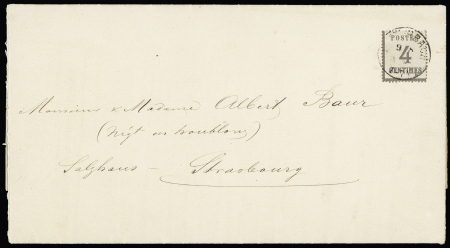 POSTES
4
CENTIMES
Monsieur & Madame Albert Baur
(Nég<sup>t</sup> en houblons)
Salzhaus –
Strasbourg